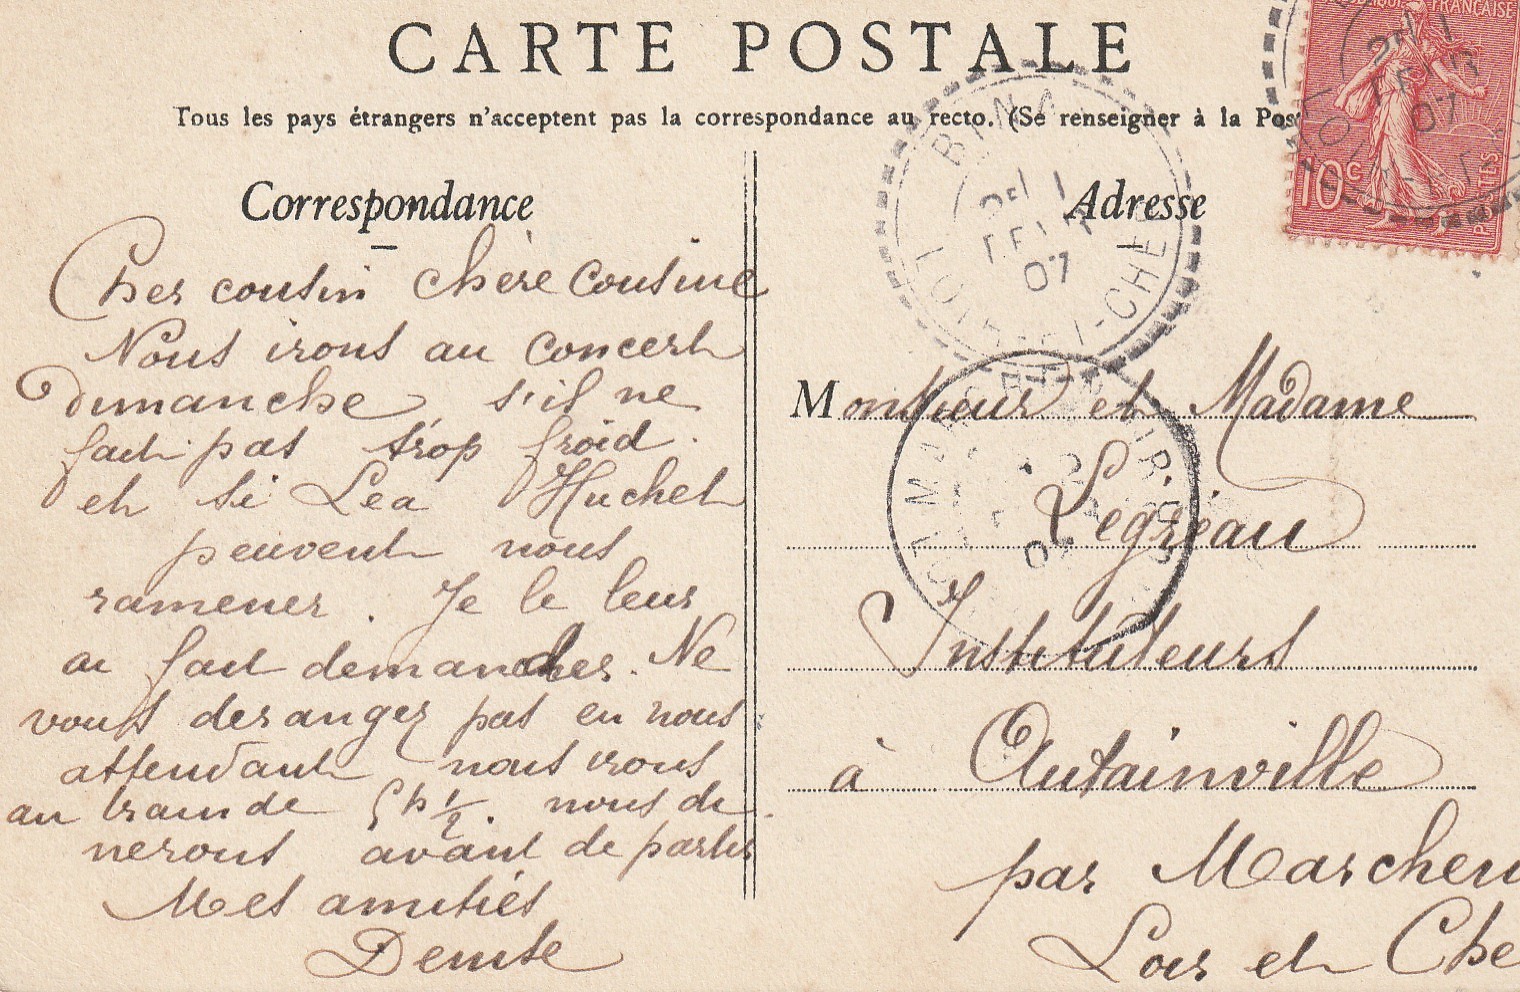 CARTE POSTALE
Tous les pays étrangers n'acceptent pas la correspondance au recto. (Se renseigner à la Pos
Correspondance
Cher cousin chère cousine
Nous irons au concert
Dimanche s'il ne
fait pas trop froid.
et si Lea Huchet
peuvent nous
ramener. Je le leur
ai fait demander. Ne
vous deranger pas en nous
attendant nous irons
au train de 5h 1/2. nous di
nerons avant de partir
Mes amitiés
Denise
Adresse
Monsieur et Madame
Legreau
Instituteurs
à Autainville
par Marchenoir
Loir et Che
FRANÇAISE
10c
POSTES
FEVR
07
LOIR-ET-CHER
07